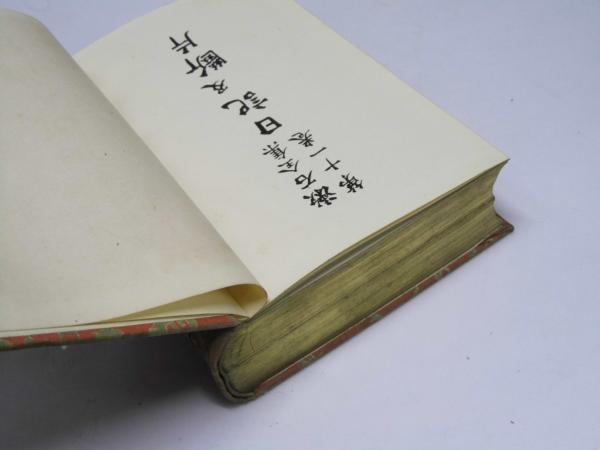 漱石全集
第十一巻
日記及断片